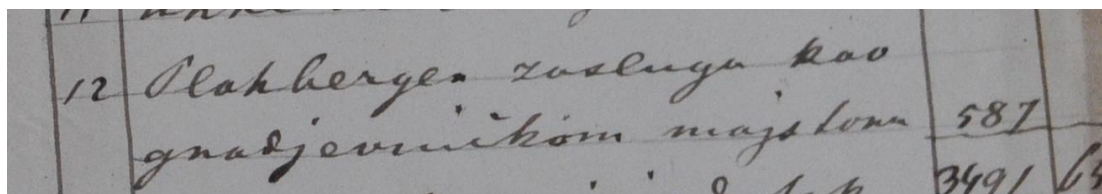 12 Plohberger zasluga kao
gradjevnickom majstoru 587
3491 63